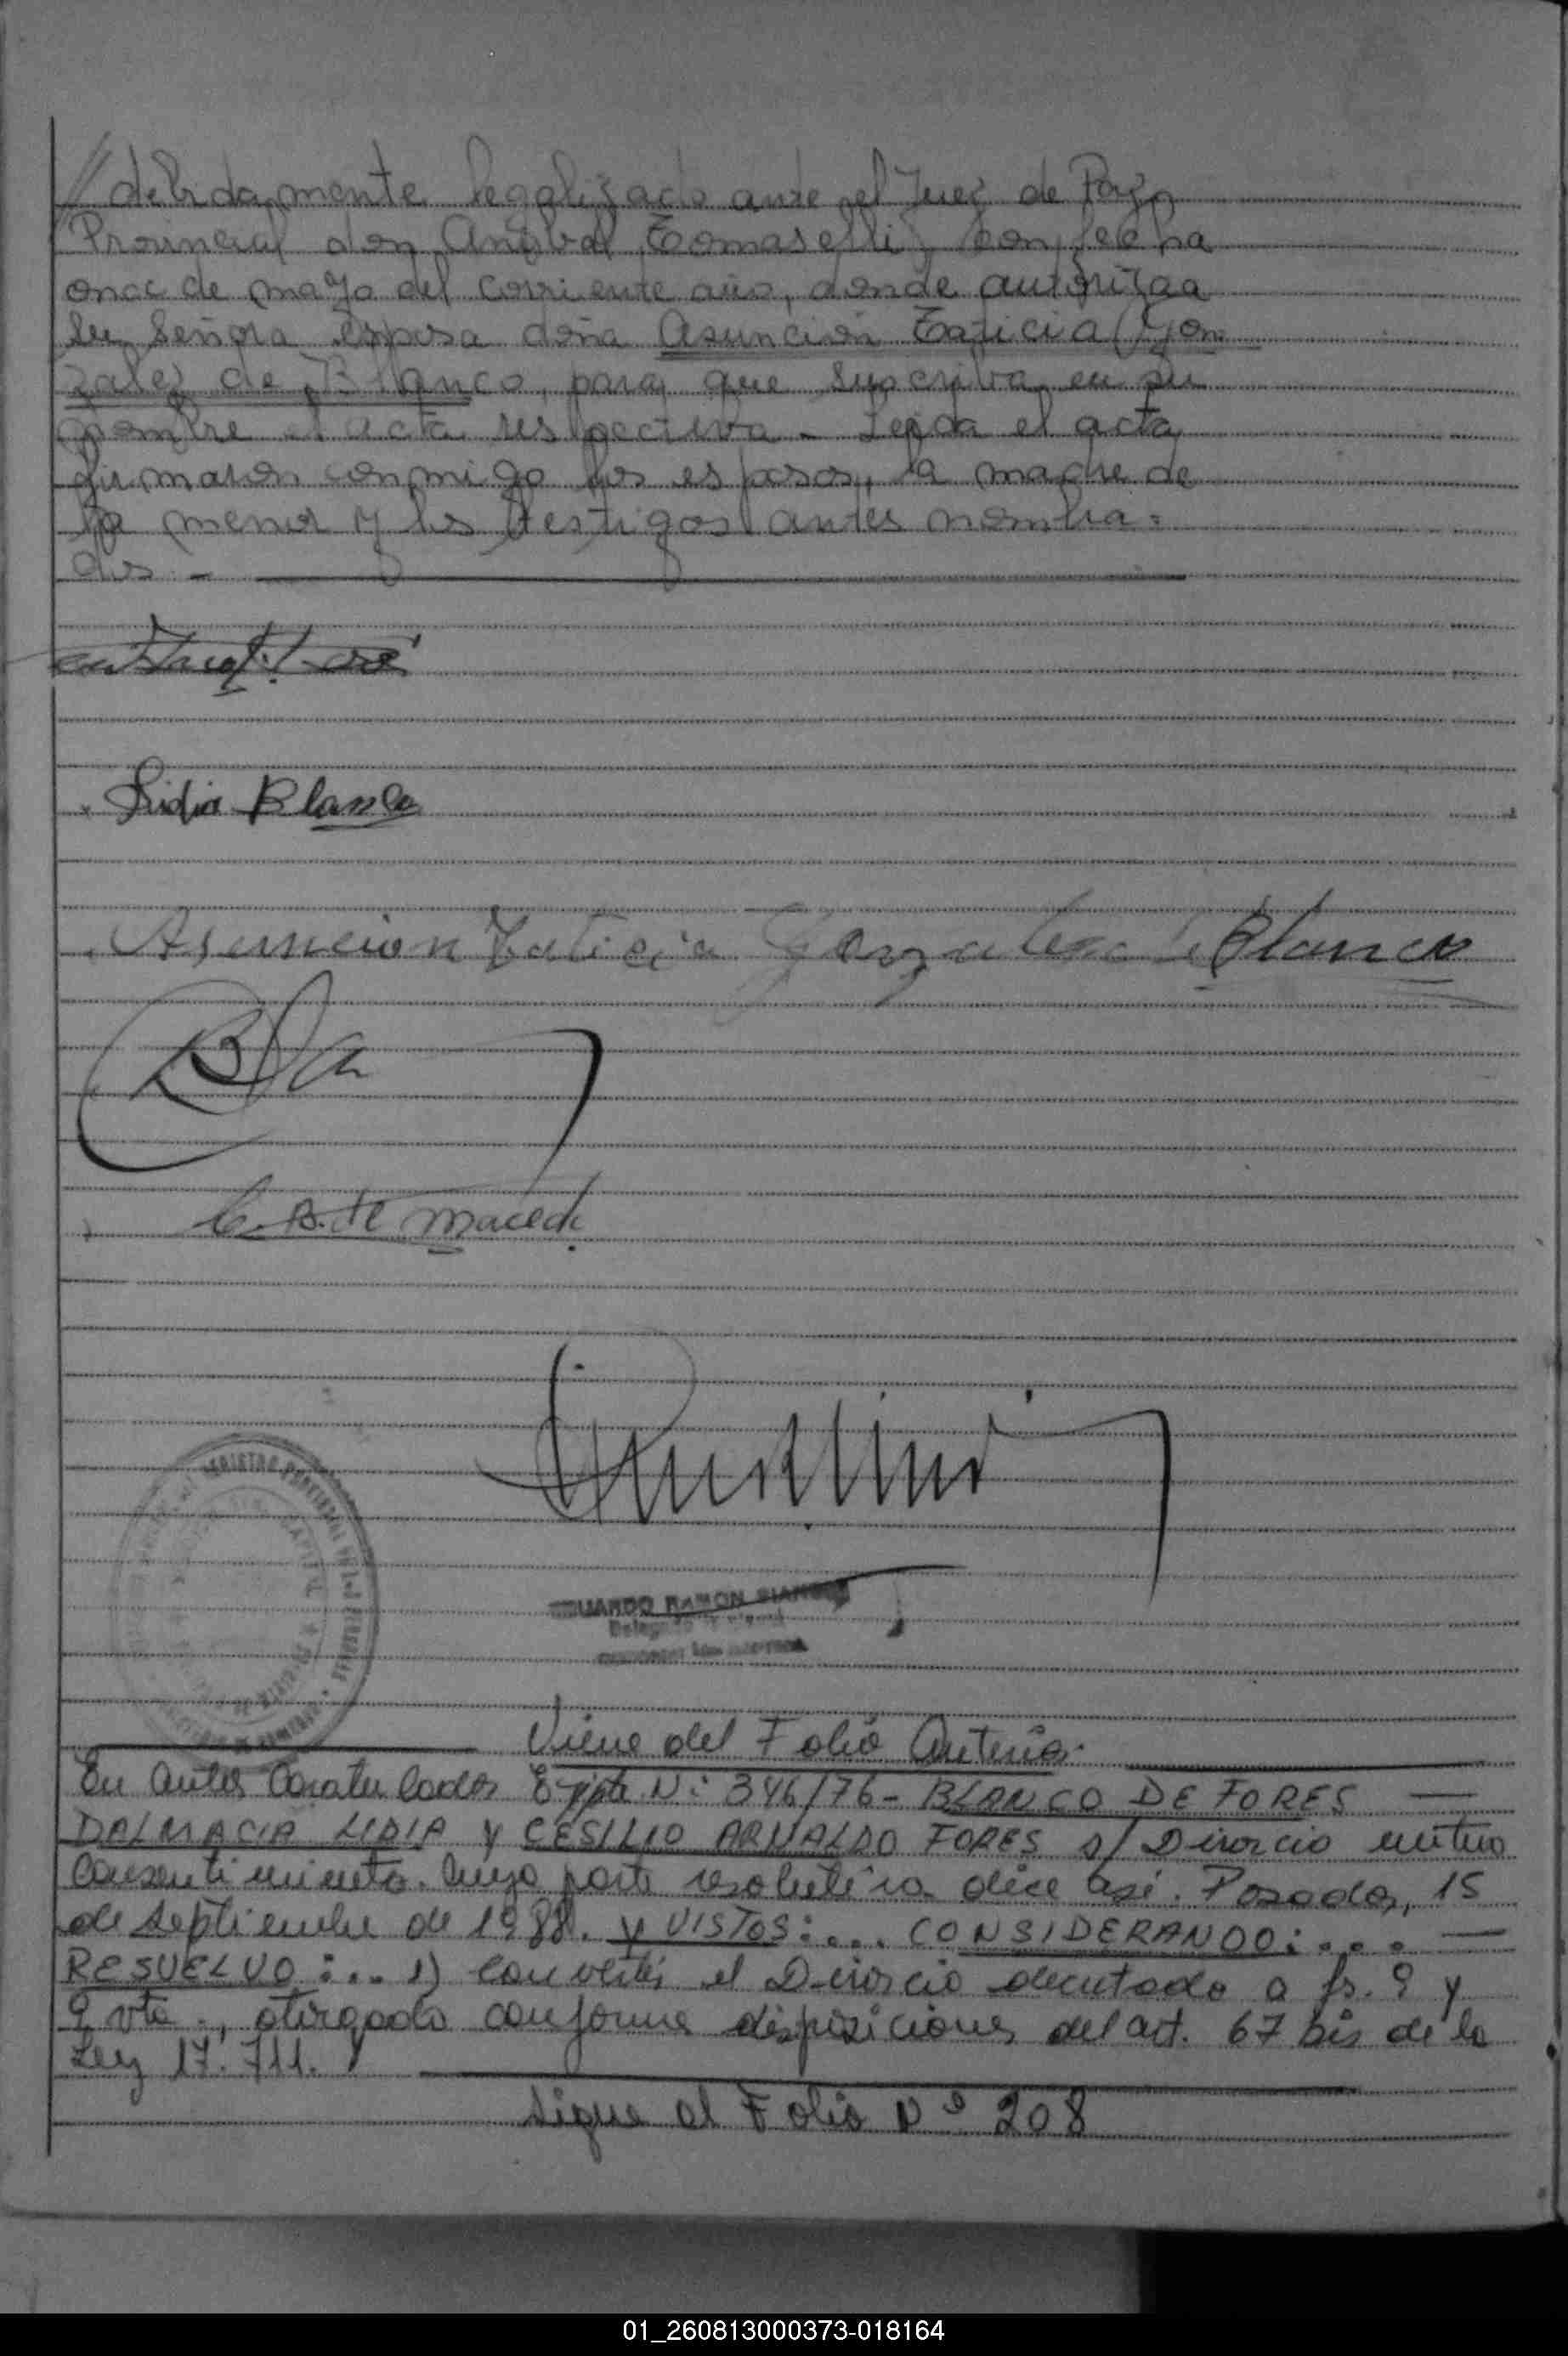 // debidamente legalizado ante el Juez de Paz
Provincial don Anibal Tomaselli, con fecha
once de mayo del corriente año, donde autoriza a
su Señora esposa doña Asunción Taticia Gon
zalez de Blanco, para que suscriba en su
nombre el acta respectiva - Leida el acta
firmaron conmigo los esposos, la madre de
la menor y los testigos antes nombra=
dos -
Lidia Blanco
Asuncion Taticia Gonzalez de Blanco
C. B. de Macedo
EDUARDO RAMON
Viene del Folio Anterior
En autos Caratulados Expte. Nº 346/76 - BLANCO DE FORES
DALMACIA LIDIA Y CESILIO ARNALDO FORES s/ Divorcio mutuo
Consentimiento. Cuya parte resolutiva dice así. Posadas, 15
de Septiembre de 1988. Y VISTOS:... CONSIDERANDO:...
RESUELVO:... 1) Convertir el Divorcio decretado a fs. 9 y
9 vta., otorgado conforme disposiciones del art. 67 bis de la
Ley 17.711.
Sigue al Folio Nº 208
01_260813000373-018164